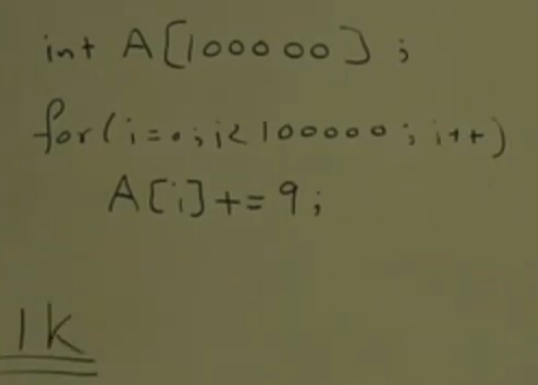 int A[100000];
for(i=0;i<100000;i++)
A[i]+=9;
1K